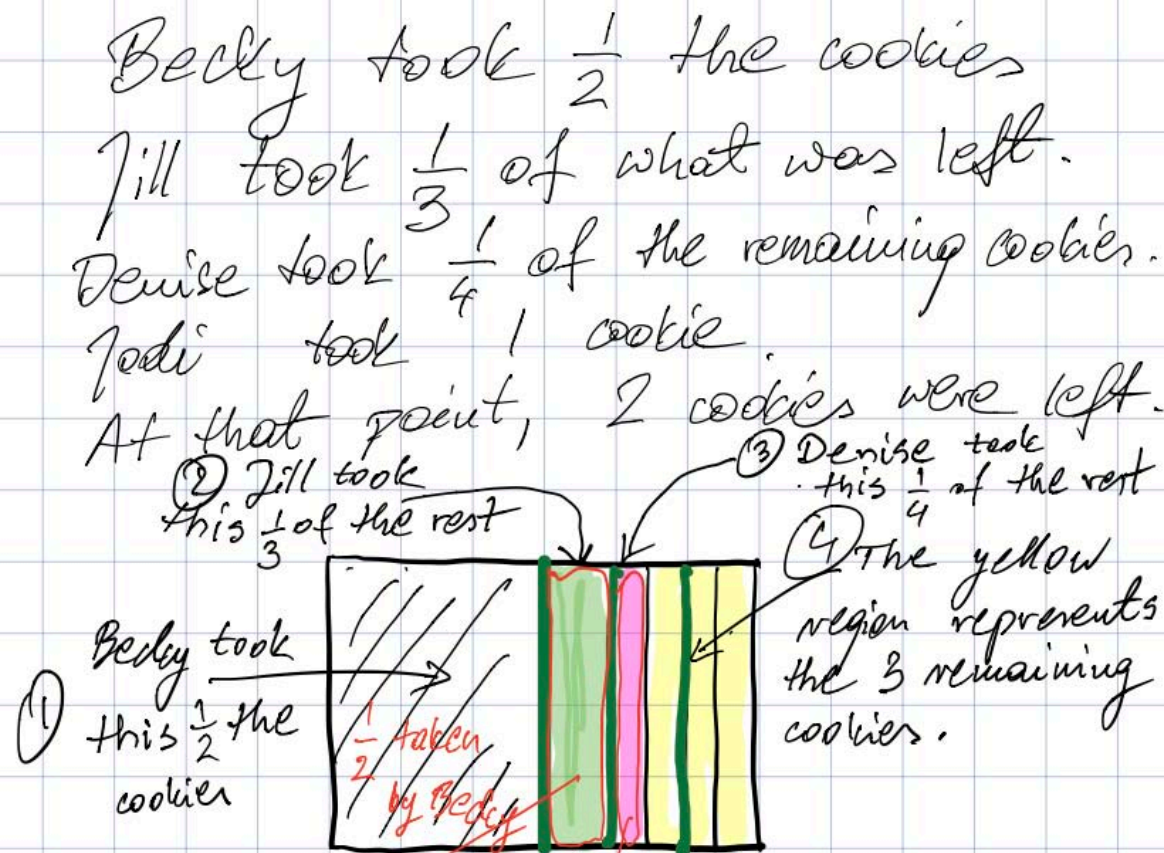 Becky took 1/2 the cookies
Jill took 1/3 of what was left.
Denise took 1/4 of the remaining cookies.
Jodi took 1 cookie.
At that point, 2 cookies were left.
② Jill took
this 1/3 of the rest
③ Denise took
this 1/4 of the rest
④ The yellow
region represents
the 3 remaining
cookies.
① Becky took
this 1/2 the
cookies
1/2 taken
by Becky